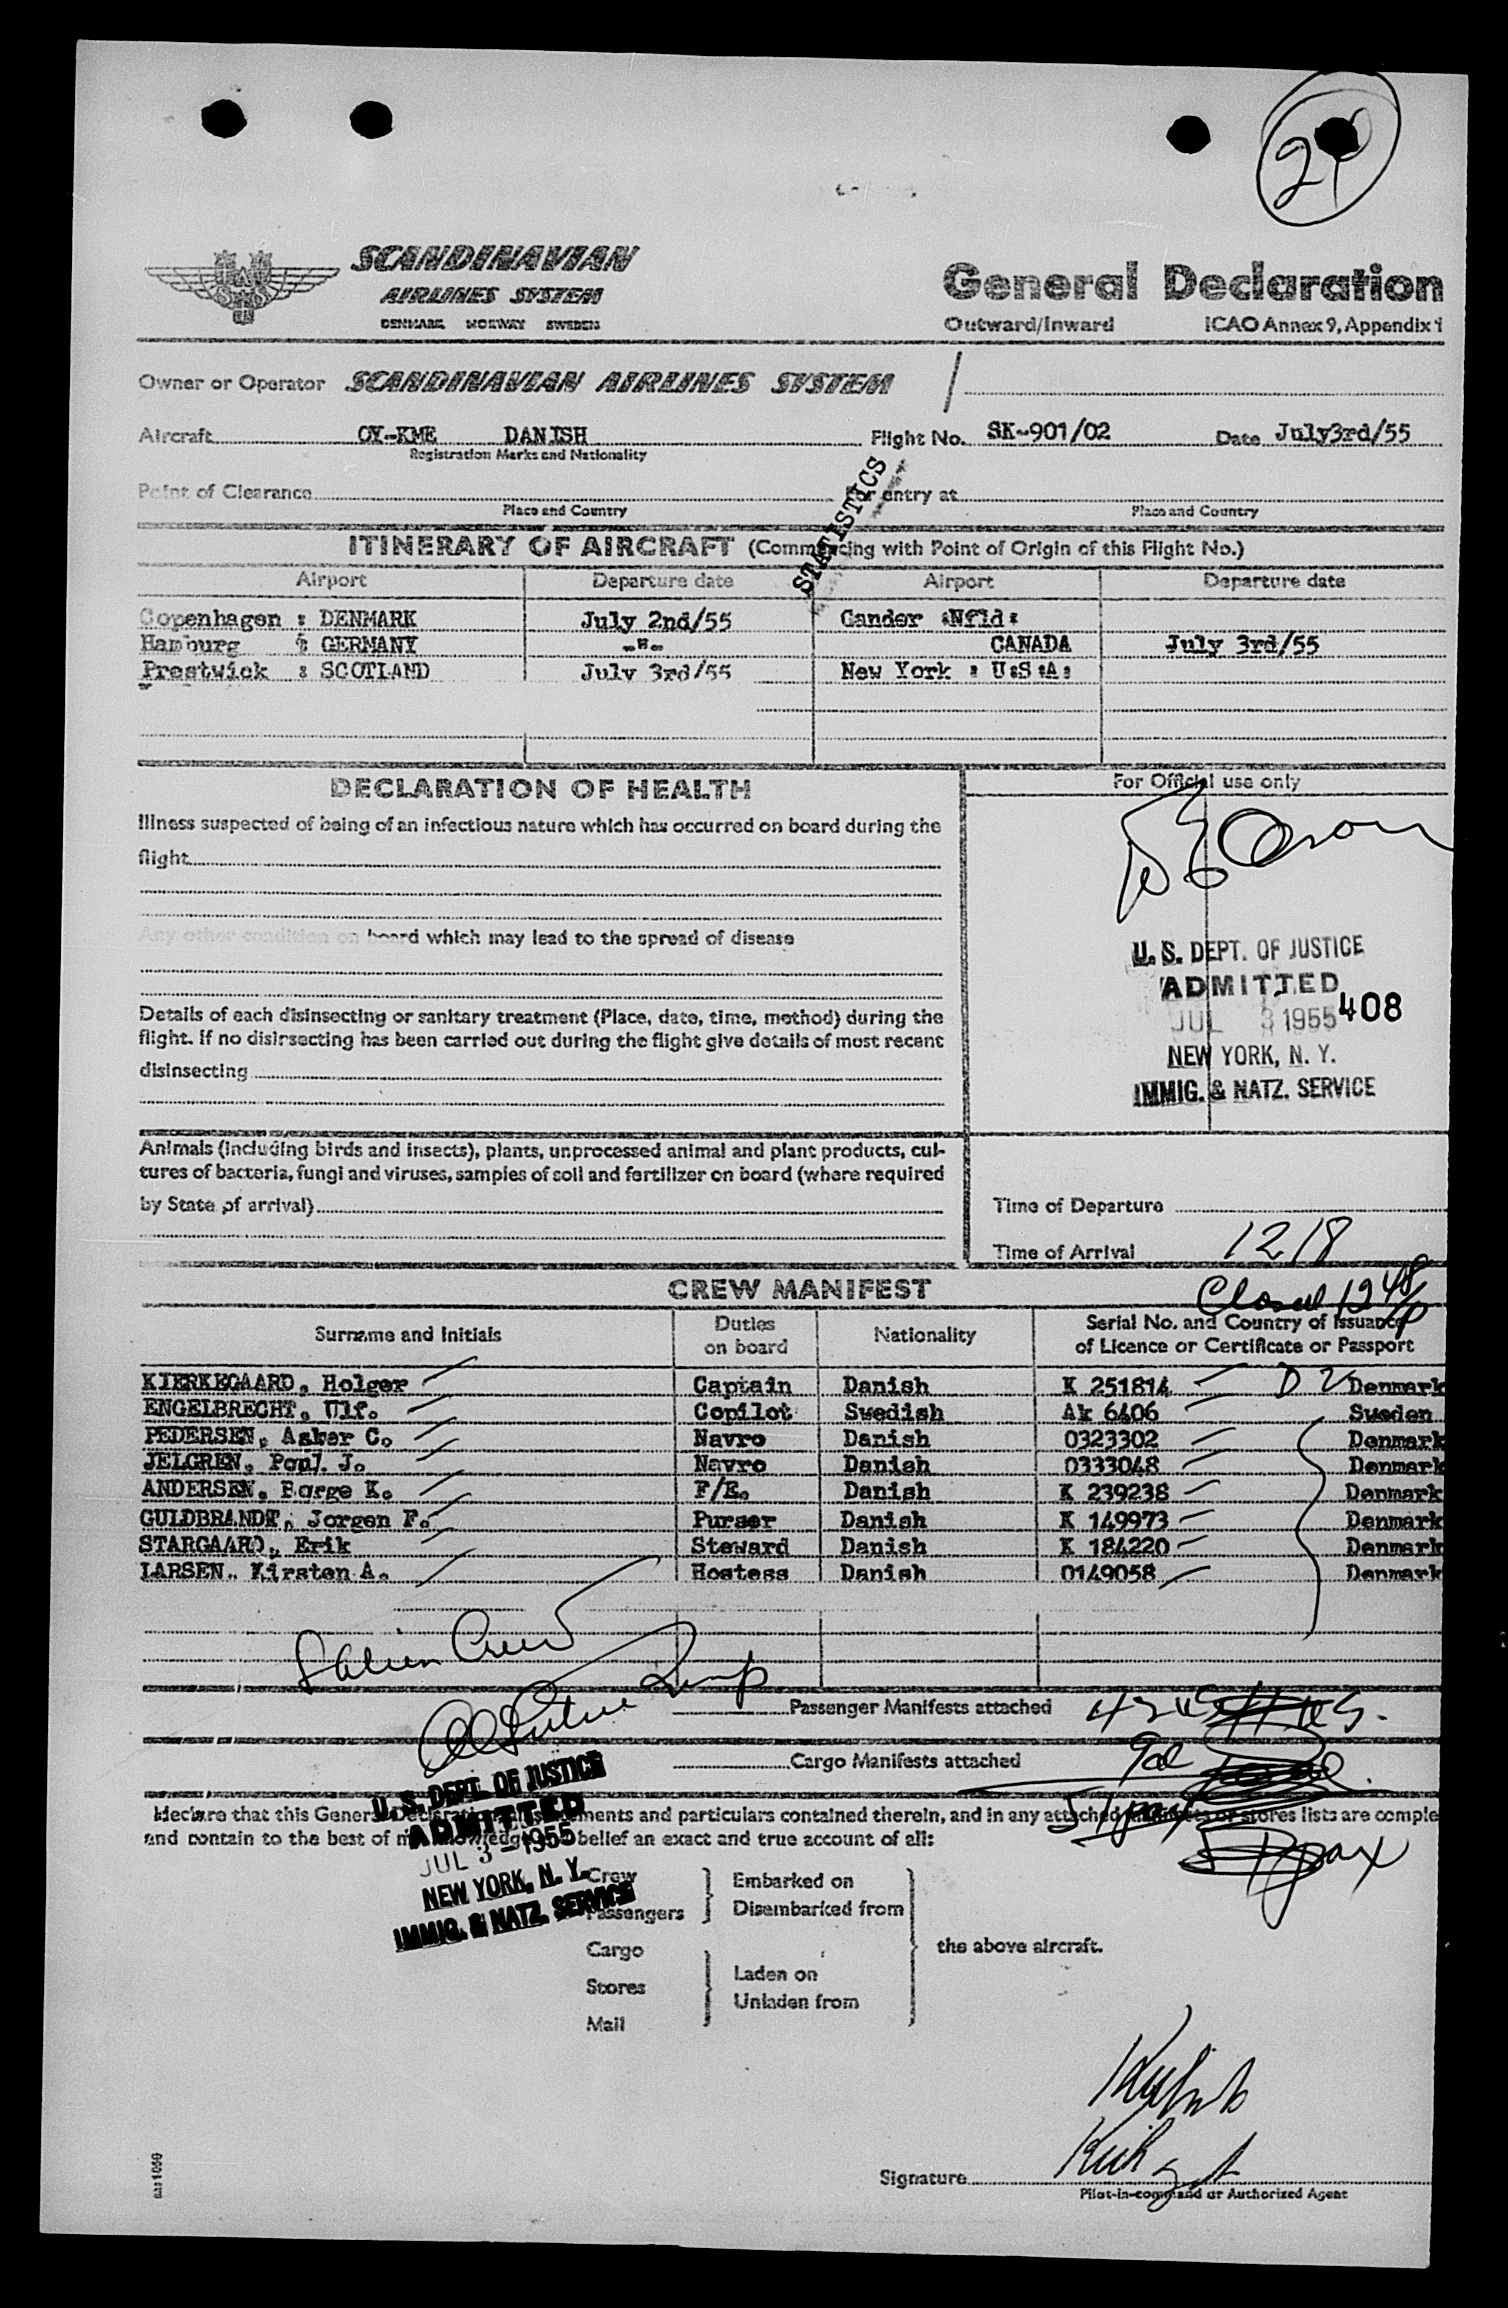 SCANDINAVIAN
AIRLINES SYSTEM
DENMARK NORWAY SWEDEN
General Declaration
Outward/Inward ICAO Annex 9, Appendix 1
Owner or Operator SCANDINAVIAN AIRLINES SYSTEM
Aircraft OY-KME DANISH Flight No. SK-901/02 Date July3rd/55
Registration Marks and Nationality
Point of Clearance For entry at
Place and Country Place and Country
STATISTICS
ITINERARY OF AIRCRAFT (Commencing with Point of Origin of this Flight No.)
Airport Departure date Airport Departure date
Copenhagen : DENMARK July 2nd/55 Gander :Nfld:
Hamburg : GERMANY -"- CANADA July 3rd/55
Prestwick : SCOTLAND July 3rd/55 New York : U:S:A:
DECLARATION OF HEALTH
For Official use only
Illness suspected of being of an infectious nature which has occurred on board during the
flight
Any other condition on board which may lead to the spread of disease
Details of each disinsecting or sanitary treatment (Place, date, time, method) during the
flight. If no disinsecting has been carried out during the flight give details of most recent
disinsecting
U. S. DEPT. OF JUSTICE
ADMITTED
JUL 3 1955 408
NEW YORK, N. Y.
IMMIG. & NATZ. SERVICE
Animals (including birds and insects), plants, unprocessed animal and plant products, cul-
tures of bacteria, fungi and viruses, samples of soil and fertilizer on board (where required
by State of arrival)
Time of Departure
Time of Arrival 1218
Closed 1248 p
CREW MANIFEST
Surname and Initials Duties on board Nationality Serial No. and Country of Issuance of Licence or Certificate or Passport
KIERKEGAARD, Holger Captain Danish K 251814 D2 Denmark
ENGELBRECHT, Ulf. Copilot Swedish Ak 6406 Sweden
PEDERSEN, Asker C. Navro Danish 0323302 Denmark
JELGREN, Poul J. Navro Danish 0333048 Denmark
ANDERSEN, Borge K. F/E. Danish K 239238 Denmark
GULDBRANDT, Jorgen F. Purser Danish K 149973 Denmark
STARGAARD, Erik Steward Danish K 184220 Denmark
LARSEN, Kirsten A. Hostess Danish 0149058 Denmark
8 alien Crew
Passenger Manifests attached 42 us
Cargo Manifests attached 9al
51 pax
pax
U. S. DEPT. OF JUSTICE
ADMITTED
JUL 3 - 1955
NEW YORK, N. Y.
IMMIG. & NATZ. SERVICE
declare that this General Declaration statements and particulars contained therein, and in any attached manifests or stores lists are comple
and contain to the best of my knowledge and belief an exact and true account of all:
Crew
Passengers
Embarked on
Disembarked from
Cargo
Stores
Mail
Laden on
Unladen from
the above aircraft.
Signature
Pilot-in-command or Authorized Agent